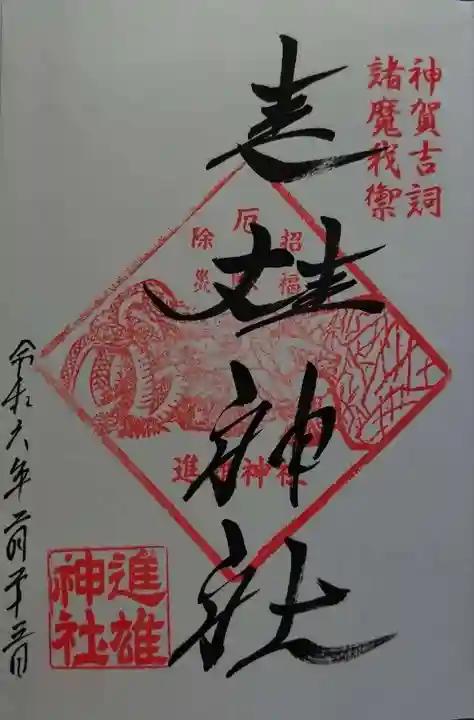 神賀吉詞
諸魔我禦
進雄神社
厄
招福
除災
進雄神社
進雄
神社
令和六年二月二十三日